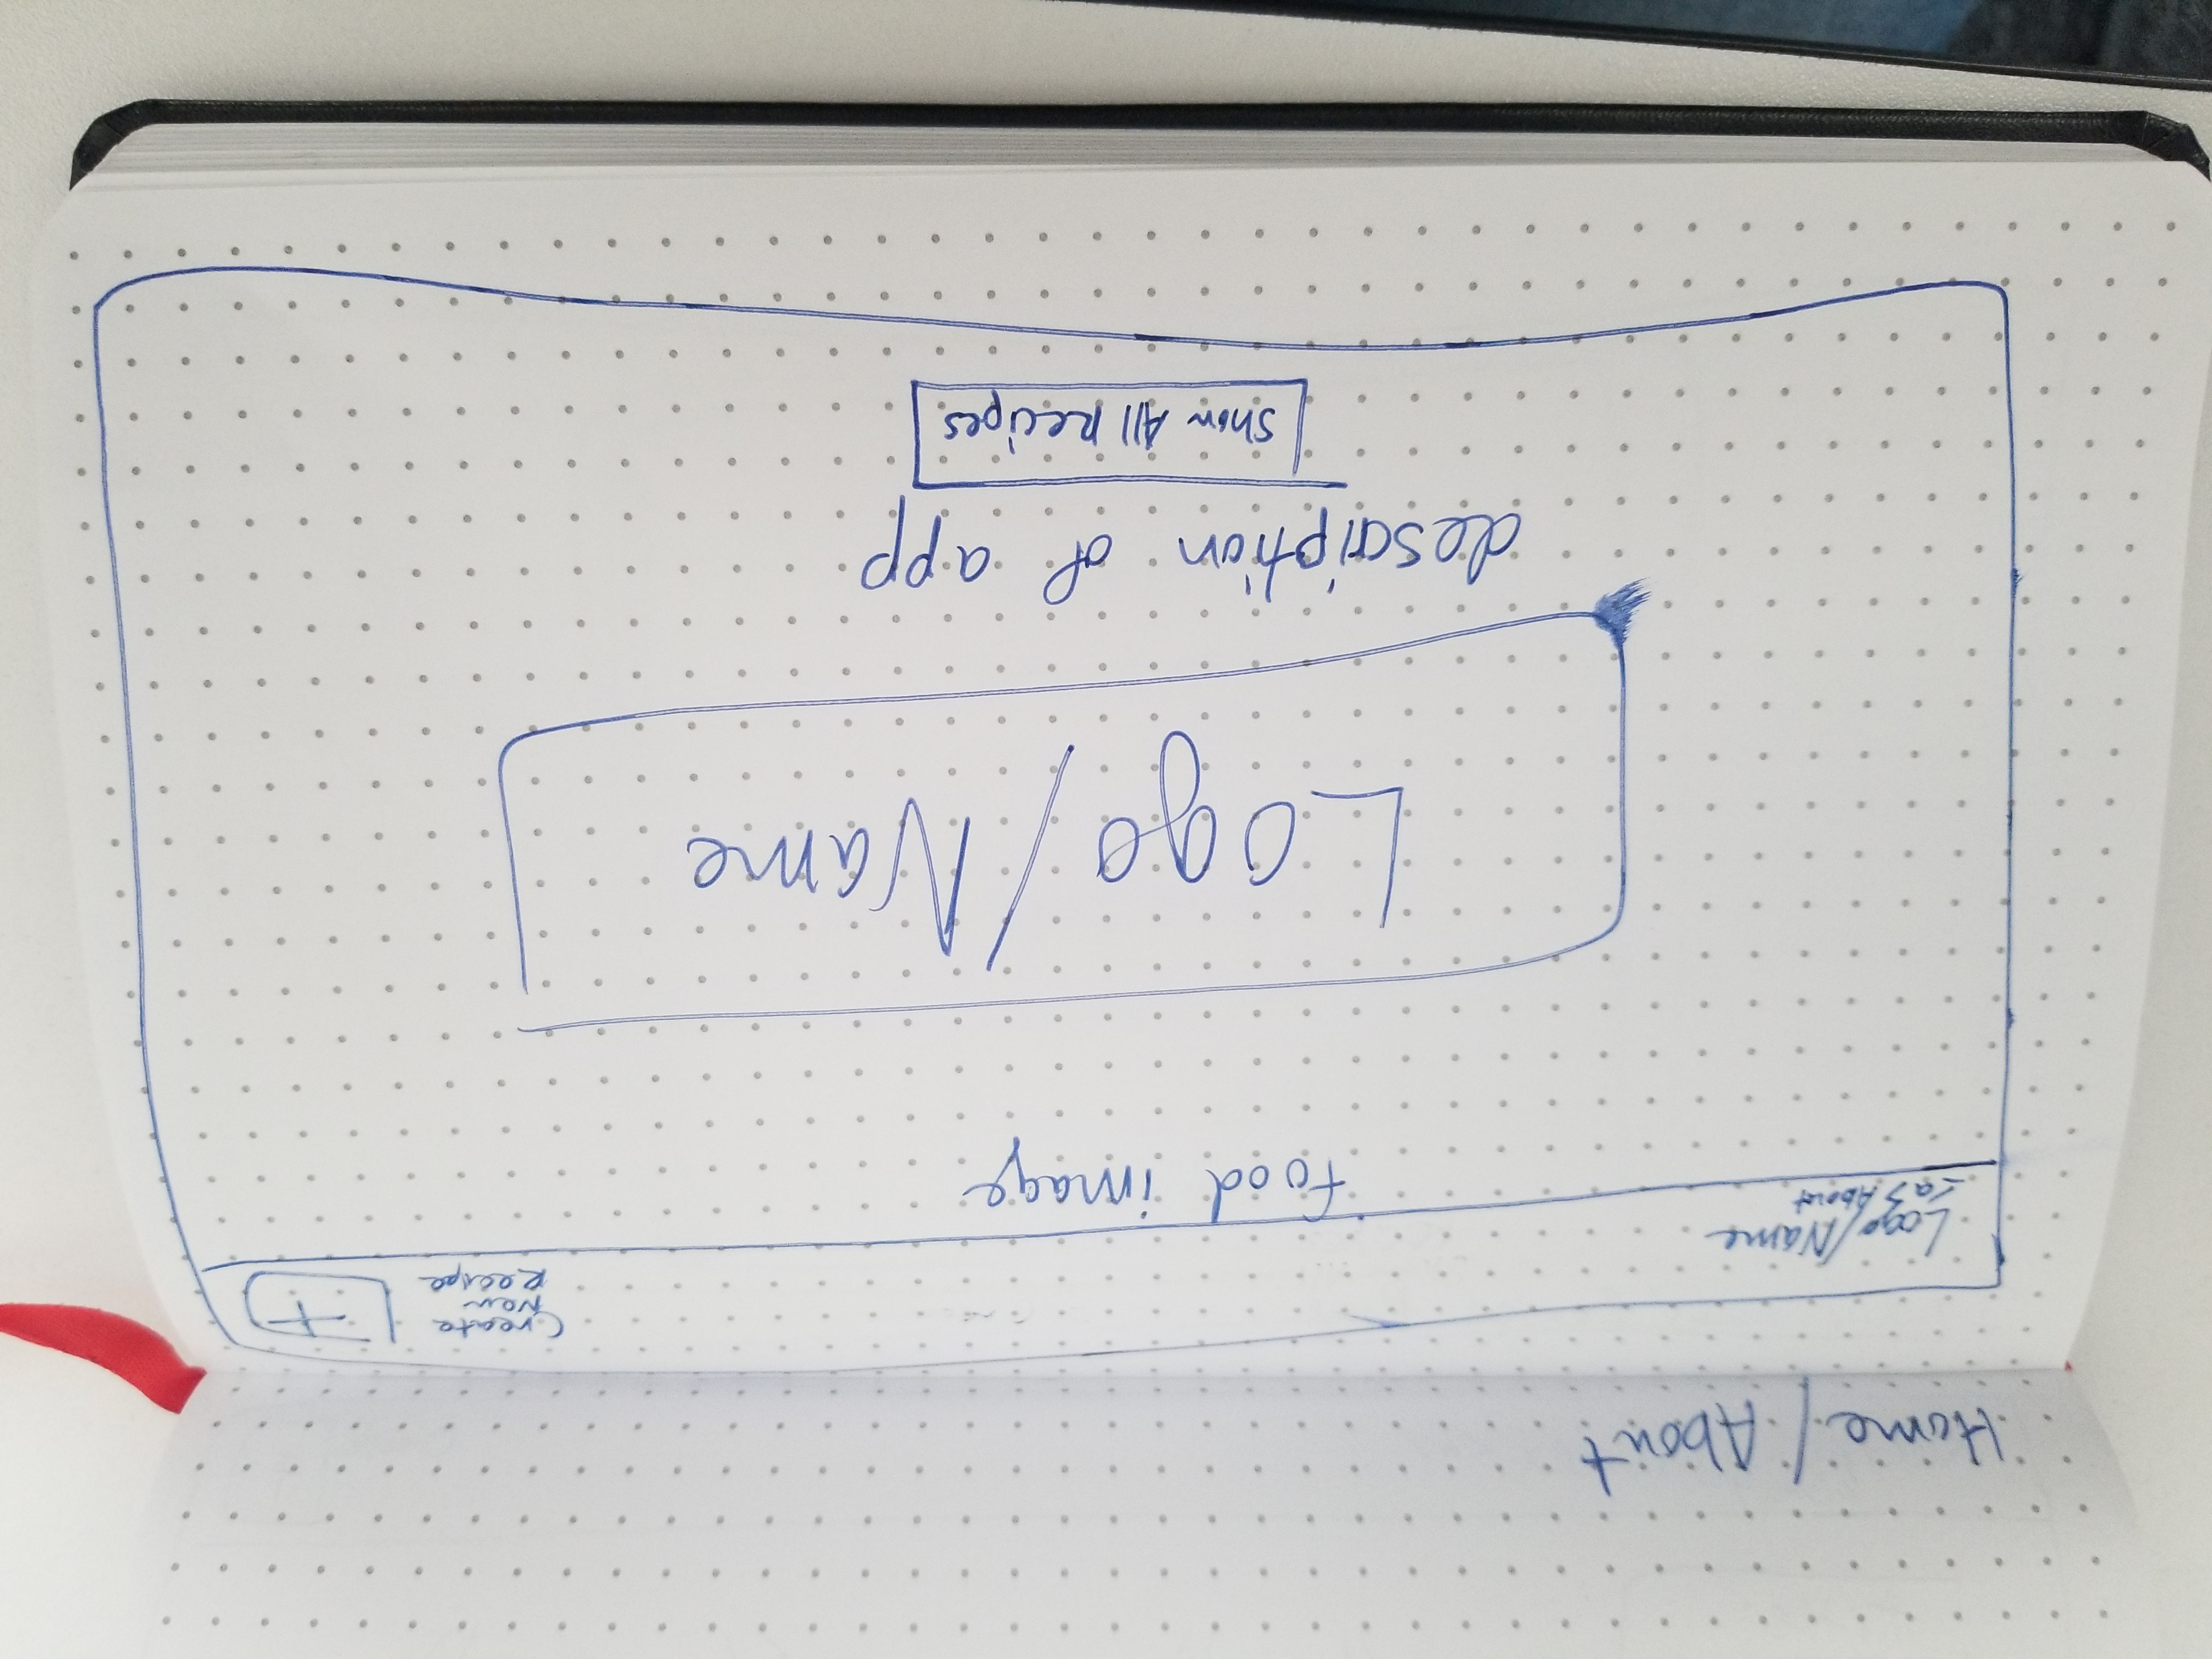 Home / About
Logo/Name
<a> About
Create
New
Recipe
+
food image
Logo / Name
description of app
Show All Recipes